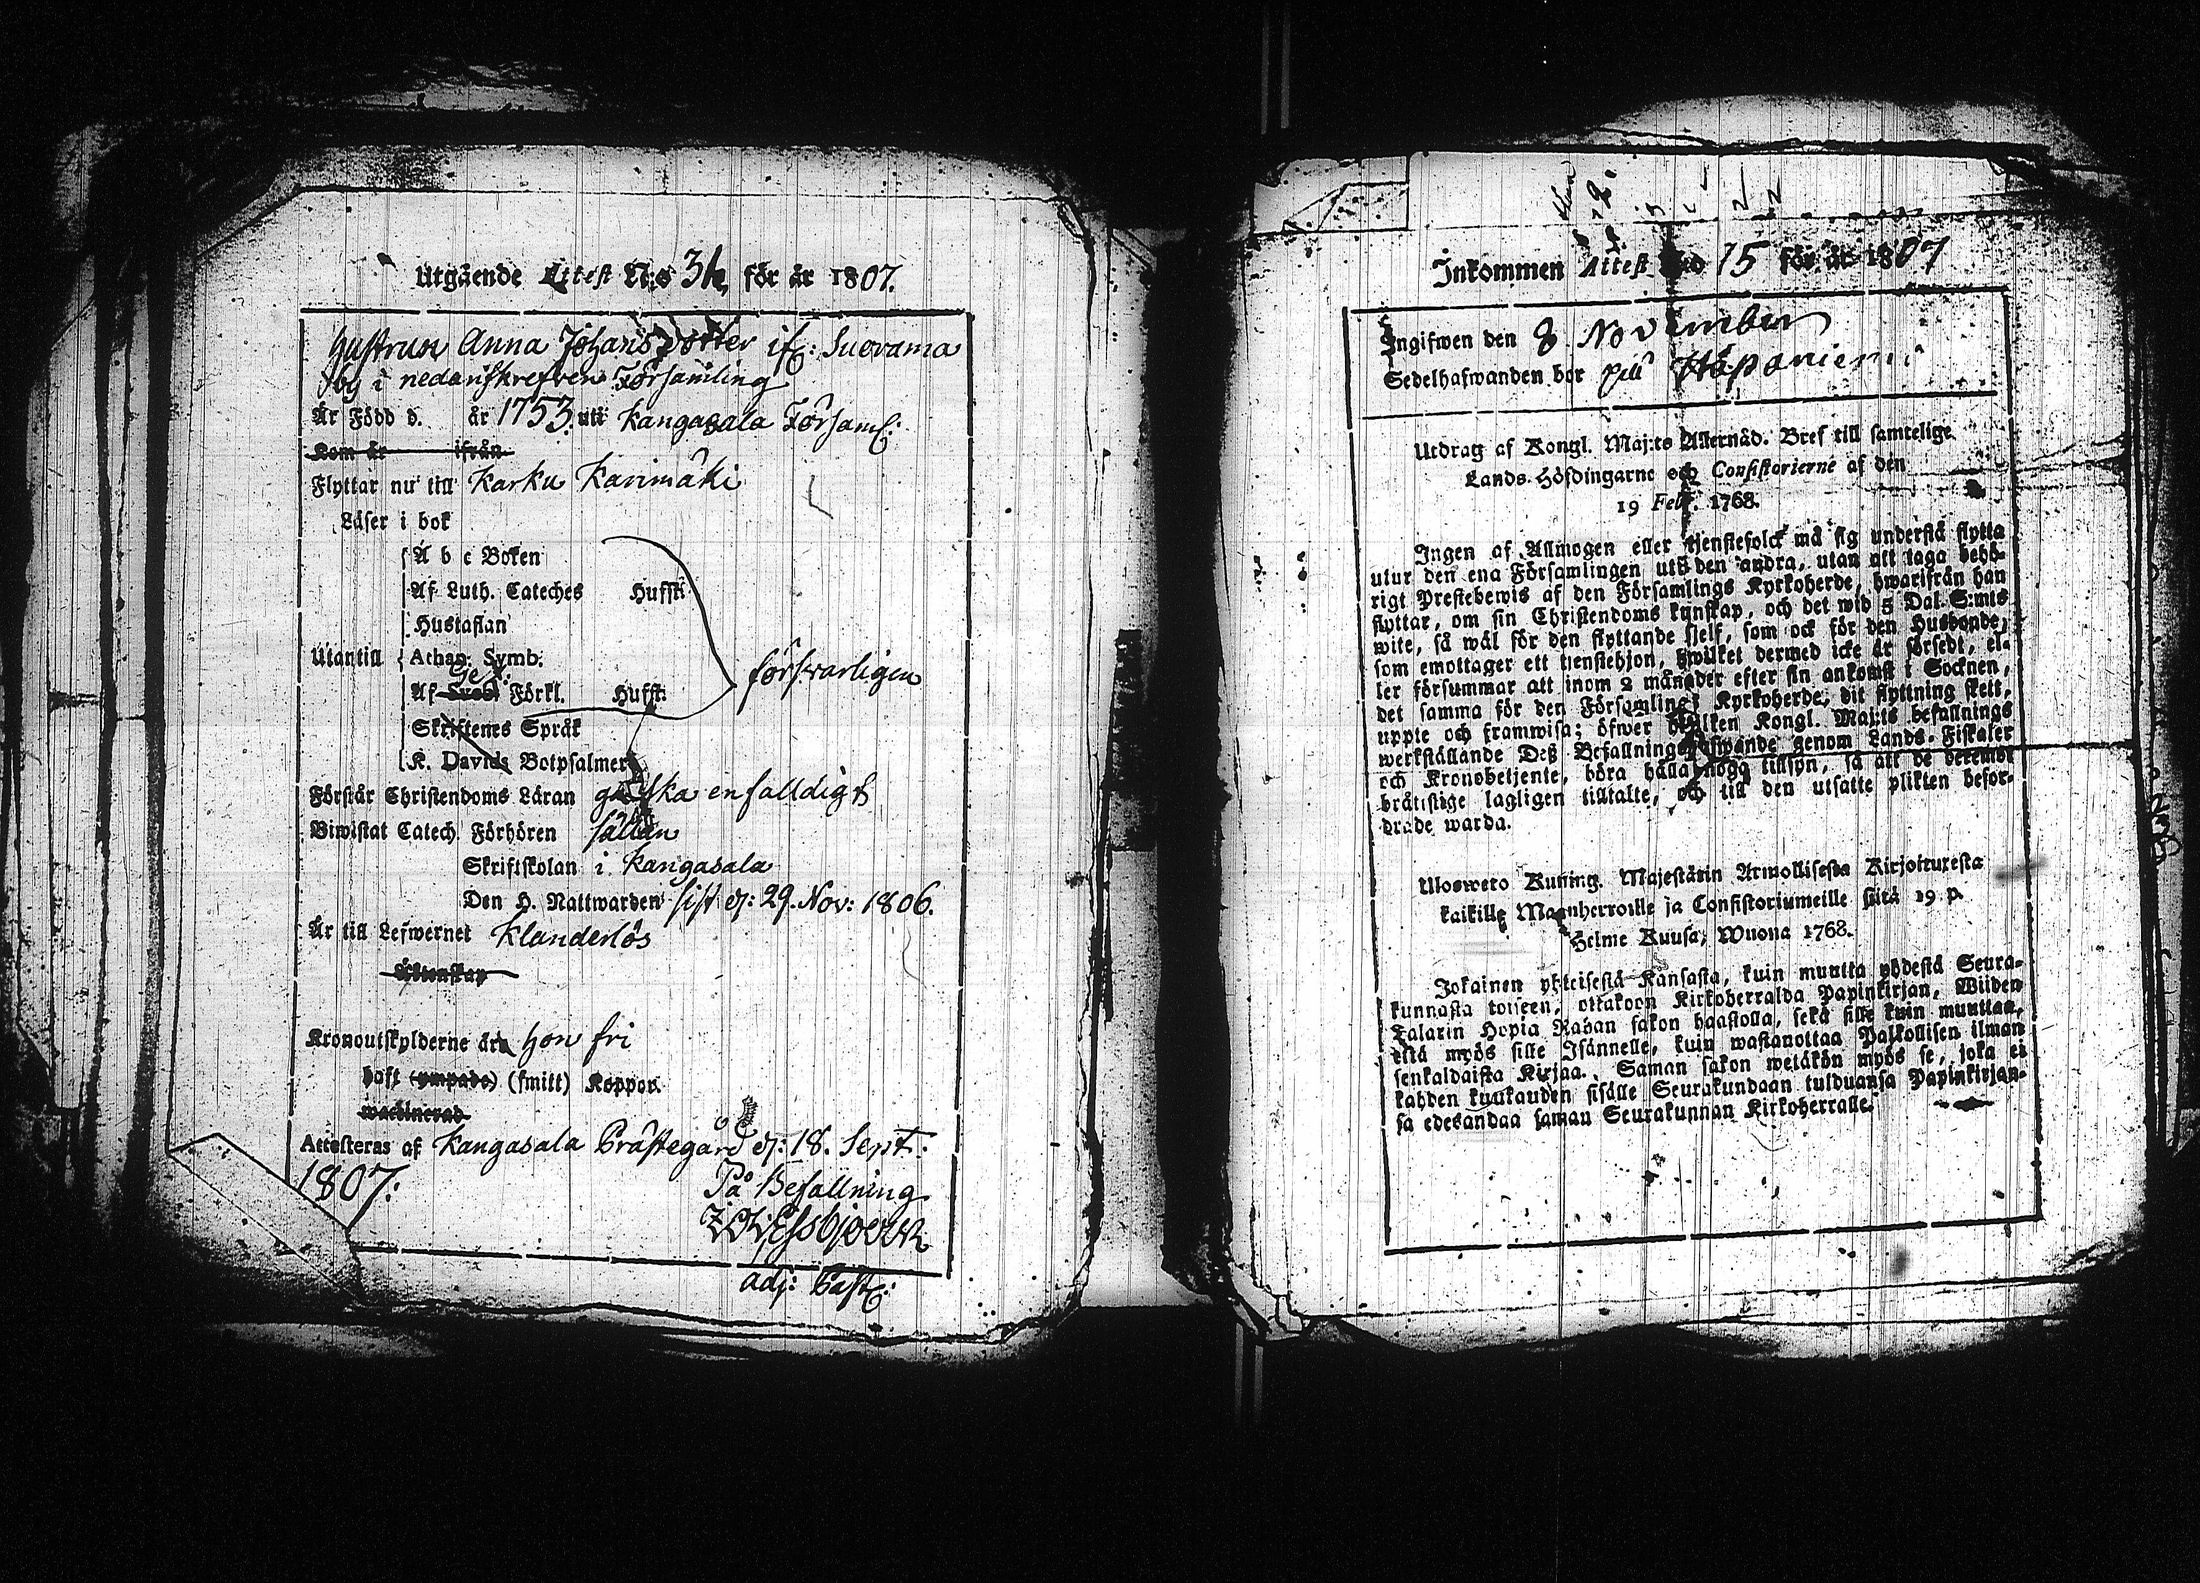 Utgående Attest N:o 34, för år 1807.
Hustrun Anna Johansdotter if: Suorama
by i nedanskrefven Församling
Är Född d. år 1753. uti Kangasala Församl:
Kom år ifrån
Flyttar nu till Karku Karimäki
Läser i bok
A b c Boken
Af Luth. Cateches Hufst:
Hustaflan
Utantill Athan. Symb. försvarligen
Gez:
Af Sveb. Förkl. Hufst:
Skriftenes Språk
K. Davids Botpsalmer
Förstår Christendoms Läran ganska enfalldigt
Biwistat Catech. Förhören sällan
Skriftskolan i Kangasala
Den H. Nattwarden sist d: 29. Nov: 1806.
Är till Lefwernet Klanderlös
Äktenskap
Kronoutskylderne är hon fri
haft (ympade) (smitt) Koppor.
waccinerad
Attesteras af Kangasala Prästegård d: 18. Sept:
1807:
På Befallning
adj: Past:
Inkommen Attest N:o 15 för år 1807
Ingifwen den 8 November
Sedelhafwanden bor på Haponiemi
Utdrag af Kongl. Maj:ts Allernåd. Bref till samtelige
Lands-Höfdingarne och Consistorierne af den
19 Febr. 1768.
Ingen af Allmogen eller tjenstefolck må sig understå flytta
utur den ena Församlingen uti den andra, utan att taga behö-
rigt Prestebewis af den Församlings Kyrkoherde, hwarifrån han
flyttar, om sin Christendoms kunskap, och det wid 5 Dal. S:mts
wite, så wäl för den flyttande sjelf, som ock för den Husbonde,
som emottager ett tjenstehjon, hwilket dermed icke är försedt, el-
ler försummar att inom 2 månader efter sin ankomst i Socknen,
det samma för den Församlings Kyrkoherde, dit flyttning skett,
uppte och framwisa; öfwer hwilken Kongl. Maj:ts befallnings
werkställande Deß Befallningshafwande genom Lands-Fiskaler
och Kronobetjente, böra hålla noga tillsyn, så att de
bråttslige lagligen tilltalte, och till den utsatte plikten befor-
drade warda.
Ulosweto Kuning. Majestätin Armollisesta Kirjoituresta
kaikille Maanherroille ja Consistoriumeille siitä 19 p.
Helme Kuusa, Wuona 1768.
Jokainen yhteisestä Kansasta, kuin muutta yhdestä Seura-
kunnasta toiseen, ottakoon Kirkoherralda Papinkirjan, Wiiden
Talarin Hopia Rahan sakon haastolla, sekä sille kuin muuttaa,
että myös sille Isännelle, kuin wastanottaa Palkollisen ilman
senkaldaista Kirjaa. Saman sakon wetäkön myös se, joka ei
kahden kuukauden sisälle Seurakundaan tulduansa Papinkirjan-
sa edesandaa saman Seurakunnan Kirkoherralle.